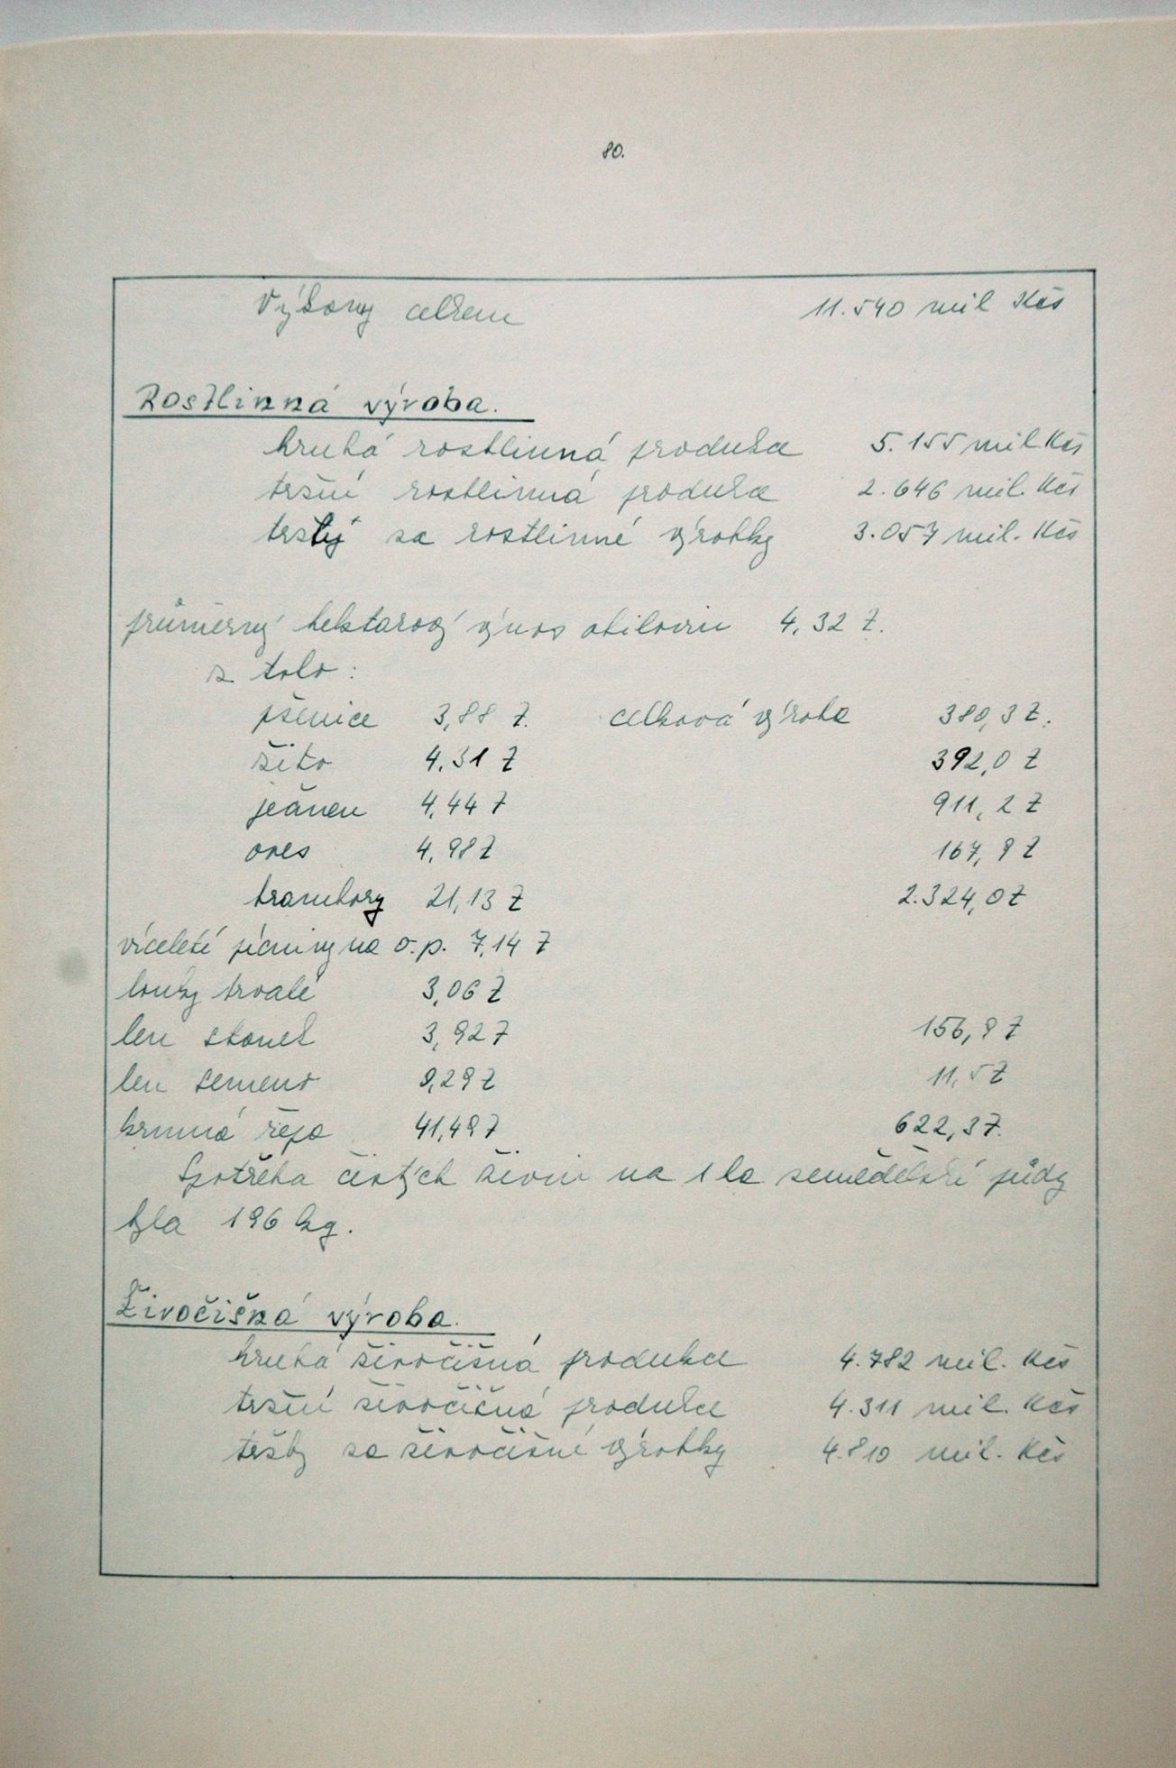 80.
Výkony celkem 11.540 mil Kčs
Rostlinná výroba.
hrubá rostlinná produkce 5.155 mil Kčs
tržní rostlinná produkce 2.646 mil. Kčs
tržby za rostlinné výrobky 3.057 mil. Kčs
průměrný hektarový výnos obilovin 4,32 t.
z toho:
pšenice 3,88 t. celková výroba 380,3 t.
žito 4.31 t 392,0 t
ječmen 4,44 t 911,2 t
oves 4,98 t 167,9 t
brambory 21,13 t 2.324,0 t
víceleté pícniny na o.p. 7,14 t
louky trvalé 3,06 t
len stonek 3,92 t 156,9 t
len semeno 0,29 t 11,5 t
krmná řepa 41,49 t 622,3 t.
Spotřeba čistých živin na 1 ha zemědělské půdy
byla 196 kg.
Živočišná výroba.
hrubá živočišná produkce 4.782 mil. Kčs
tržní živočišná produkce 4.311 mil. Kčs
tržby za živočišné výrobky 4.810 mil. Kčs